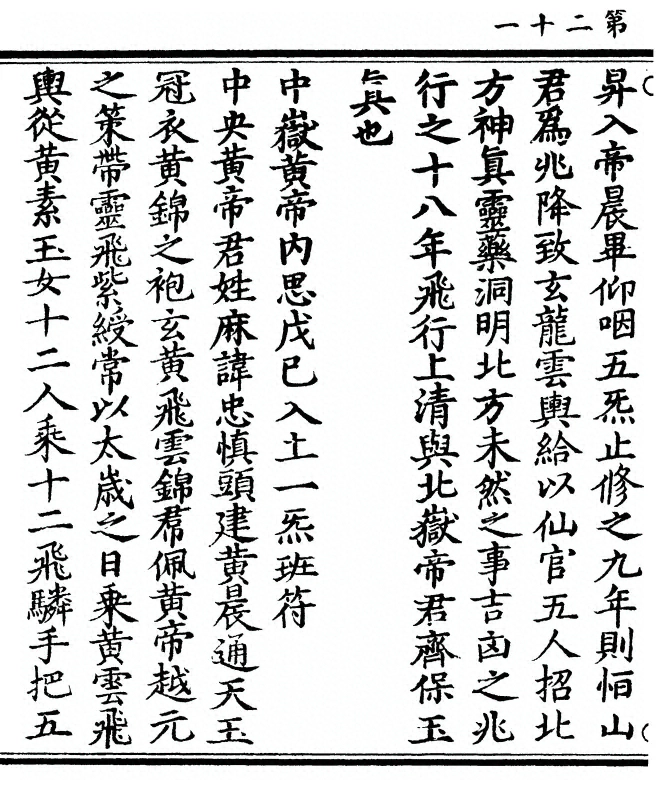 第二十一
昇入帝晨畢仰咽五炁止修之九年則恒山
君爲兆降致玄龍雲輿給以仙官五人招北
方神眞靈藥洞明北方未然之事吉凶之兆
行之十八年飛行上清與北嶽帝君齊保玉
眞也
中嶽黃帝內思戊巳入土一炁班符
中央黃帝君姓麻諱忠愼頭建黃晨通天玉
冠衣黃錦之袍玄黃飛雲錦帬佩黃帝越元
之策帶靈飛紫綬常以太歲之日乘黃雲飛
輿從黃素玉女十二人乘十二飛驎手把五